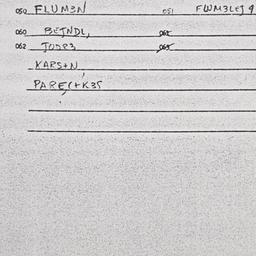 052 FLUM3N 051 FWM3LEJ9
060 BETNDL, 061
062 JODR3 065
KARS+N
PARE(+K3S